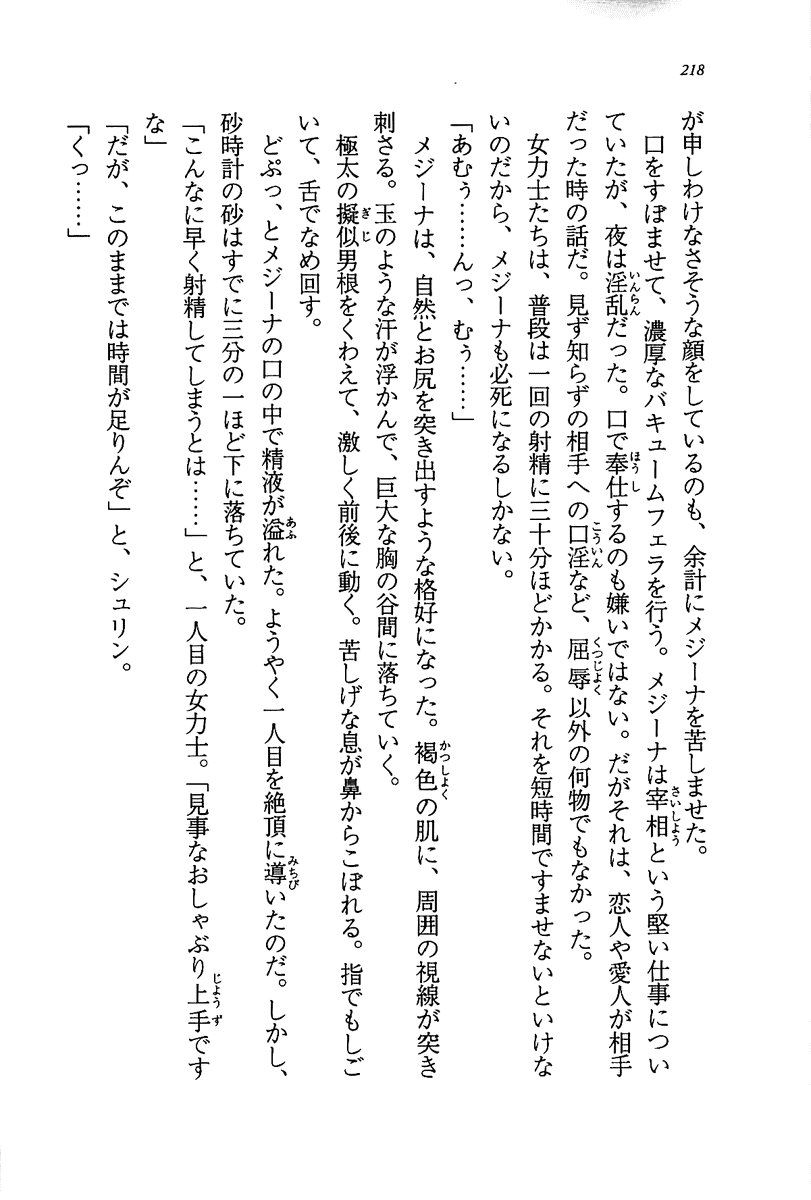 218
が申しわけなさそうな顔をしているのも、余計にメジーナを苦しませた。
口をすぼませて、濃厚なバキュームフェラを行う。メジーナは宰相という堅い仕事につい
ていたが、夜は淫乱だった。口で奉仕するのも嫌いではない。だがそれは、恋人や愛人が相手
だった時の話だ。見ず知らずの相手への口淫など、屈辱以外の何物でもなかった。
女力士たちは、普段は一回の射精に三十分ほどかかる。それを短時間ですませないといけな
いのだから、メジーナも必死になるしかない。
「あむぅ……んっ、むぅ……」
メジーナは、自然とお尻を突き出すような格好になった。褐色の肌に、周囲の視線が突き
刺さる。玉のような汗が浮かんで、巨大な胸の谷間に落ちていく。
極太の擬似男根をくわえて、激しく前後に動く。苦しげな息が鼻からこぼれる。指でもしご
いて、舌でなめ回す。
どぷっ、とメジーナの口の中で精液が溢れた。ようやく一人目を絶頂に導いたのだ。しかし、
砂時計の砂はすでに三分の一ほど下に落ちていた。
「こんなに早く射精してしまうとは……」と、一人目の女力士。「見事なおしゃぶり上手です
な」
「だが、このままでは時間が足りんぞ」と、シュリン。
「くっ……」